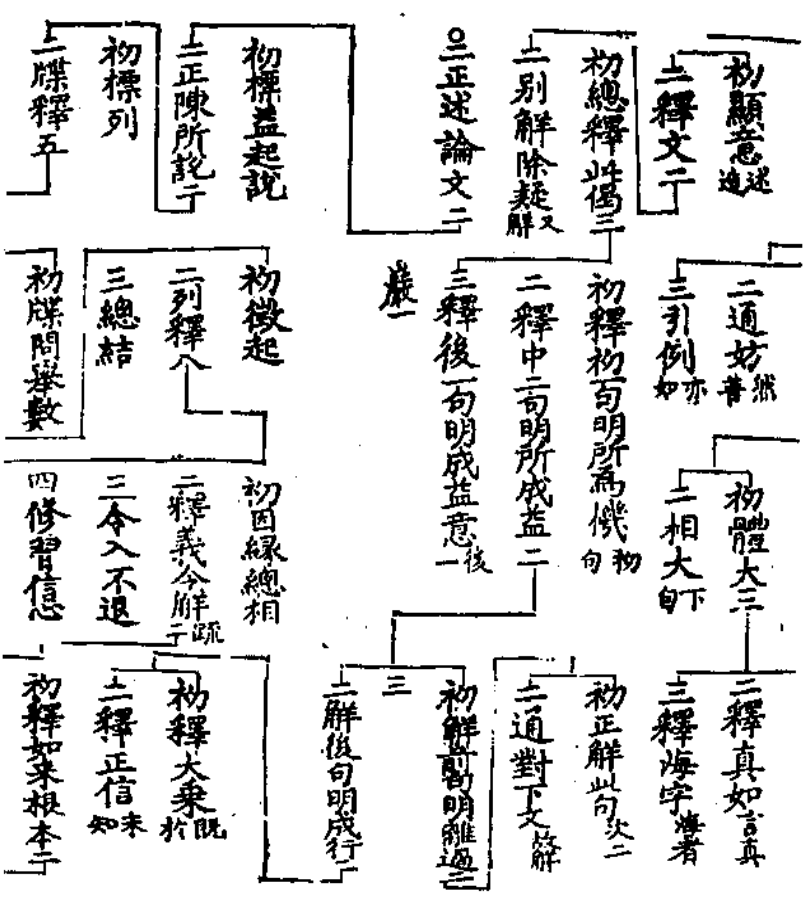 初顯意述意
二釋文二
初總釋此偈三
二別解除疑又解
○二正述論文二
初標益起說
二正陳所說二
初標列
二牒釋五
二通妨然普
三引例亦如
初釋初一句明所為機初句
二釋中二句明所成益二
三釋後一句明成益意後一
嚴一
初徵起
二列釋八
三總結
初牒問舉數
初體大三
二相大下句
初因緣總相
二釋義今解疏二
三令入不退
四修習信
二釋真如言真
三釋海字海者
初正解此句次二
二通對下文解
初解前句明離過二
三
二解後句明成行二
初釋大乘既於
二釋正信未知
初釋如來根本二